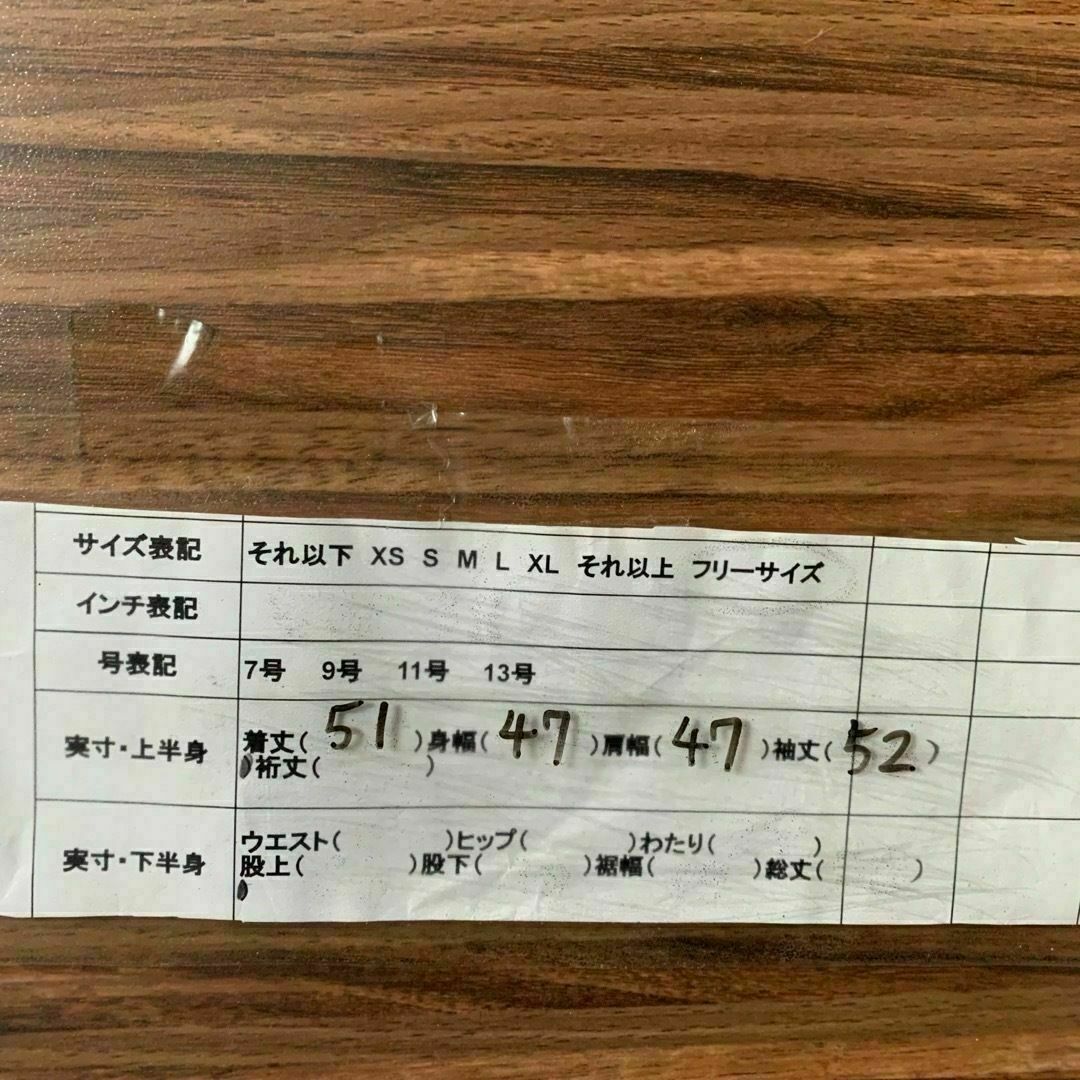 サイズ表記 それ以下 XS S M L XL それ以上 フリーサイズ
インチ表記
号表記 7号 9号 11号 13号
実寸・上半身 着丈( 51 )身幅( 47 )肩幅( 47 )袖丈( 52 )
)裄丈( )
実寸・下半身 ウエスト( )ヒップ( )わたり( )
股上( )股下( )裾幅( )総丈( )